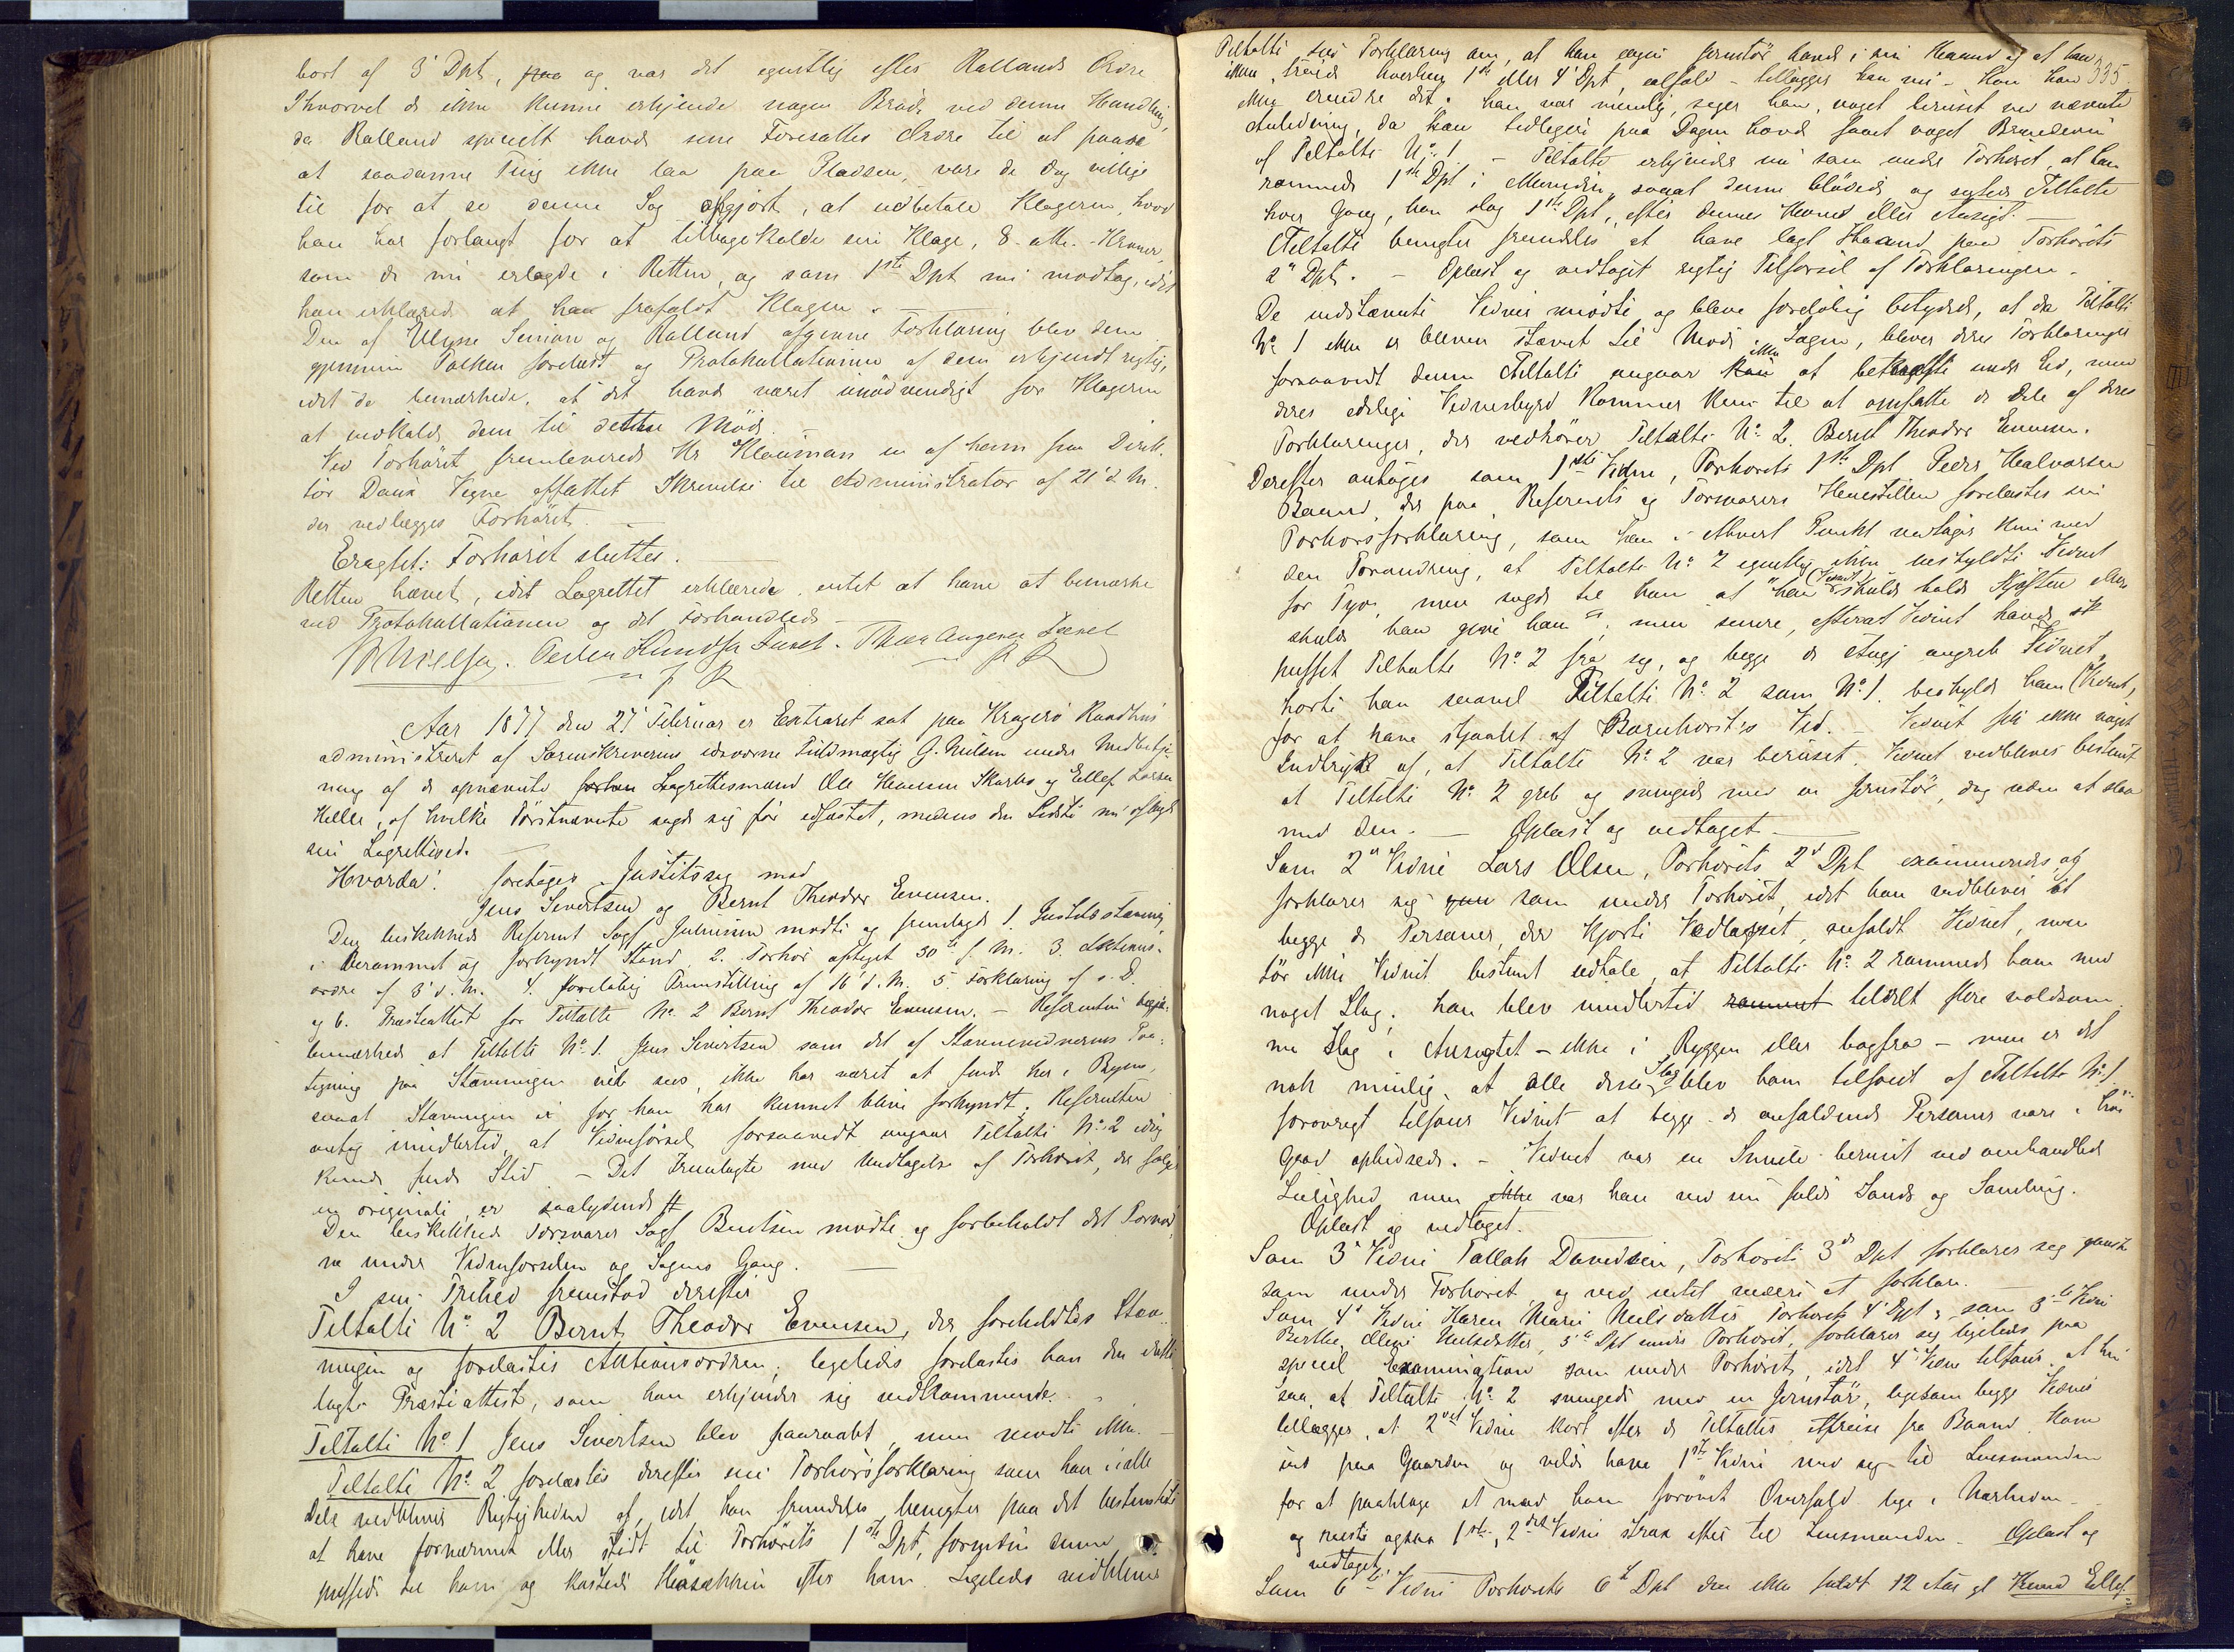 bort af 3' Dpt, paa og var det egentlig efter Rallands Ordre
Ihvorvel de ikke kunne erkjende nogen Brøde ved denne Handling,
da Ralland specielt havde sine Foresattes Ordre til at paasee
at saadanne Ting ikke laa paa Pladsen, vare de dog villige
til for at se denne Sag afgjort, at udbetale Klageren, hvad
han har forlangt for at tilbagekalde sin Klage, 8. otte. Kroner,
som de nu erlagde i Retten, og som 1ste Dpt nu modtog, idet
han erklærede at han frafaldt Klagen. -
Den af Ulysse Simion og Ralland afgivne Forklaring blev dem
gjennem Tolken forelæst og Protokollationen af dem erkjendt rigtig,
idet de bemærkede, at det havde været unødvendigt for Klageren
at indkalde dem til dette Møde. -
Ved Forhøret fremleverede Hr Klouman en af ham paa Direk-
tør Daux Vegne affattet Skrivelse til Administrator af 21' d. M.
der vedlægges Forhøret. -
Eragtet: Forhøret sluttes.
Retten hævet, idet Lagrettet erklærede intet at have at bemærke
ved Protokollationen og det Forhandlede -
Aar 1877 den 27' Februar er Extraret sat paa Kragerø Raadhus
administreret af Sorenskriverens edsvorne Fuldmægtig G. Nielsen under Medbetje-
ning af de opnævnte Lagrettesmænd Ole Hansen Skarbo og Ellef Larsen
Helle, af hvilke Førstnævnte sagde sig før edfæstet, medens den Sidste nu aflagde
sin Lagrettesed. -
Hvorda: foretoges Justitssag mod
Jens Sivertsen og Bernt Theodor Evensen.
Den beskikkede Referent Sagf Juliussen mødte og fremlagde 1. Justitsstævning
i berammet og forkyndt Stand, 2. Forhør optaget 30te f. M. 3. Aktions-
ordre af 3' d. M. 4. foreløbig Fremstilling af 16' d. M. 5. Forklaring af s. D.
og 6. Præsteattest for Tiltalte No 2 Bernt Theodor Evensen. - Referenten
bemærkede at Tiltalte No 1. Jens Sivertsen som det af Stævnevidnernes Paa-
tegning paa Stævningen vil sees, ikke har været at finde her i Byen,
saaat Stævningen ei for ham har kunnet blive forkyndt. Referenten
antog imidlertid, at Vidneførsel forsaavidt angaar Tiltalte No 2 idag
kunde finde Sted. - Det Fremlagte med Undtagelse af Forhøret, der følger
in originali, er saalydende #
Den beskikkede Forsvarer Sagf Bentsen mødte og forbeholdt det Fornød-
ne under Vidneførselen og Sagens Gang. -
I sin Frihed fremstod derefter
Tiltalte No 2 Bernt Theodor Evensen, der foreholdtes Stæv-
ningen og forelæstes Aktionsordren; ligeledes forelæstes han den
lagte Præsteattest, som han erkjender sig vedkommende.
Tiltalte No 1 Jens Sivertsen blev paaraabt, men mødte ikke. -
Tiltalte No 2 forelæstes derefter sin Forhørsforklaring som han i alle
Dele vedbliver Rigtigheden af, idet han fremdeles benegter paa det bestemteste
at have fornærmet eller stødt til Forhørets 1ste Dpt, forinden denne
puffede til ham og kastede Høisækken efter ham. Ligeledes vedbliver
335.
Tiltalte sin Forklaring om, at han ingen Jernstør havde i sin Haand og at han
ikke truede hverken 1ste eller 4' Dpt, ialfald - tillægger han nu - kan han
ikke erindre det. Han var nemlig, siger han, noget beruset ved nævnte
Anledning, da han tidligere paa Dagen havde faaet noget Brændevin
af Tiltalte No 1 - Tiltalte erkjender nu som under Forhøret, at han
rammede 1ste Dpt i Munden, saaat denne blødede og sigtede Tiltalte
hver Gang, han slog 1ste Dpt, efter dennes Hoved eller Ansigt. -
Tiltalte benegter fremdeles at have lagt Haand paa Forhørets
2' Dpt. - Oplæst og vedtaget rigtig Tilførsel af Forklaringen. -
De indstævnte Vidner mødte og bleve foreløbig betydede, at da Tiltalte
No 1 ikke er bleven stævnet til Møde i Sagen, bliver deres Forklaringer
forsaavidt denne Tiltalte angaar ikke at bekræfte under Ed, men
deres edelige Vidnesbyrd kommer kun til at omfatte de Dele af deres
Forklaringer, der vedkører Tiltalte No 2. Bernt Theodor Evensen.
Derefter antoges som 1ste Vidne, Forhørets 1ste Dpt Peder Halvorsen
Baand, der paa Referents og Forsvarers Henstillen forelæstes sin
Forhørsforklaring, som han i ethvert Punkt vedtager kun med
den Forandring, at Tiltalte No 2 egentlig ikke beskyldte Vidnet
for Tyv, men sagde til ham at "han (Vidnet) skulde holde Kjæften ellers
skulde han give ham", men senere, efterat Vidnet havde
puffet Tiltalte No 2 fra sig, og begge de Angj angreb Vidnet,
hørte han saavel Tiltalte No 2 som No 1. beskylde ham (Vidnet)
for at have stjaalet af Barnhorst's Ved. - Vidnet fik ikke noget
Indtryk af, at Tiltalte No 2 var beruset. Vidnet vedbliver bestemt
at Tiltalte No 2 greb og svingede med en Jernstør, dog uden at slaa
med den. - Oplæst og vedtaget. -
Som 2' Vidne Lars Olsen, Forhørets 2' Dpt examineredes og
forklarer sig som under Forhøret, idet han vedbliver at
begge de Personer, der kjørte Vedlasset, anfaldt Vidnet, men
tør ikke Vidnet bestemt udtale, at Tiltalte No 2 rammede ham med
noget Slag; han blev imidlertid rammet tildelt flere voldsom
me Slag i Ansigtet - ikke i Ryggen eller bagfra - men er det
nok muelig at alle disse Slag blev ham tilføiet af Tiltalte No 1.
forøvrigt tilføier Vidnet at begge de anfaldende Personer vare i høi
Grad ophidsede. - Vidnet var en Smule beruset ved omhandlede
Leilighed, men ikke var han ved sin fulde Sands og Samling.
Oplæst og vedtaget.
Som 3' Vidne Tallak Davidsen, Forhørets 3' Dpt forklarer sig ganske
som under Forhøret, og ved intet videre at forklare. -
Som 4' Vidne Karen Marie Neilsdatter Forhørets 4' Dpt & som 5te Vidne
Berthe Oline Nielsdatter, 5te Dpt under Forhøret, forklarer sig ligeledes paa
speciel Examination som under Forhøret, idet 4' Vidne tilføier, at hun
saa, at Tiltalte No 2 svingede med en Jernstør, ligesom begge Vidner
tillægger, at 2det Vidne kort efter de Tiltaltes Afreise fra Baand kom
ind paa Gaarden og vilde have 1ste Vidne med sig til Lensmanden
for at paaklage et mod ham forøvet Overfald lige i Nærheden -
og reiste ogsaa 1ste, 2det Vidne strax efter til Lensmanden. Oplæst og
vedtaget. -
Som 6te Vidne Forhørets 6te Dpt den ikke fuldt 12 Aar gl Knud Ellef-